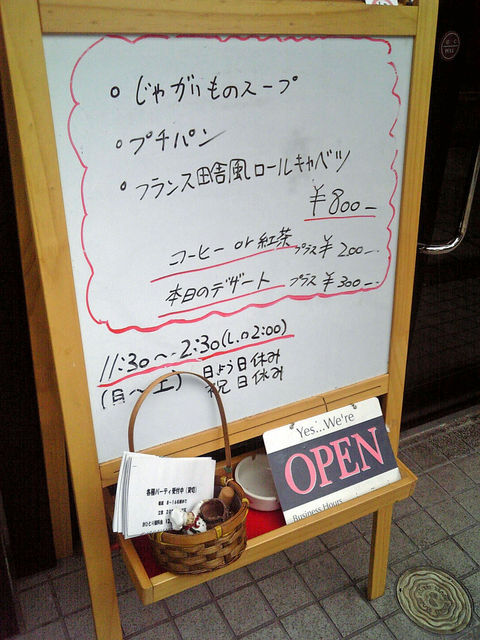 。じゃがいものスープ
。プチパン
。フランス田舎風ロールキャベツ
¥800-
コーヒー or 紅茶 プラス¥200-
本日のデザート プラス¥300-
11:30~2:30(L.O 2:00)
(月~土) 日よう日休み
祝日休み
Yes...We're
OPEN
Business Hours
各種パーティ受付中(貸切)